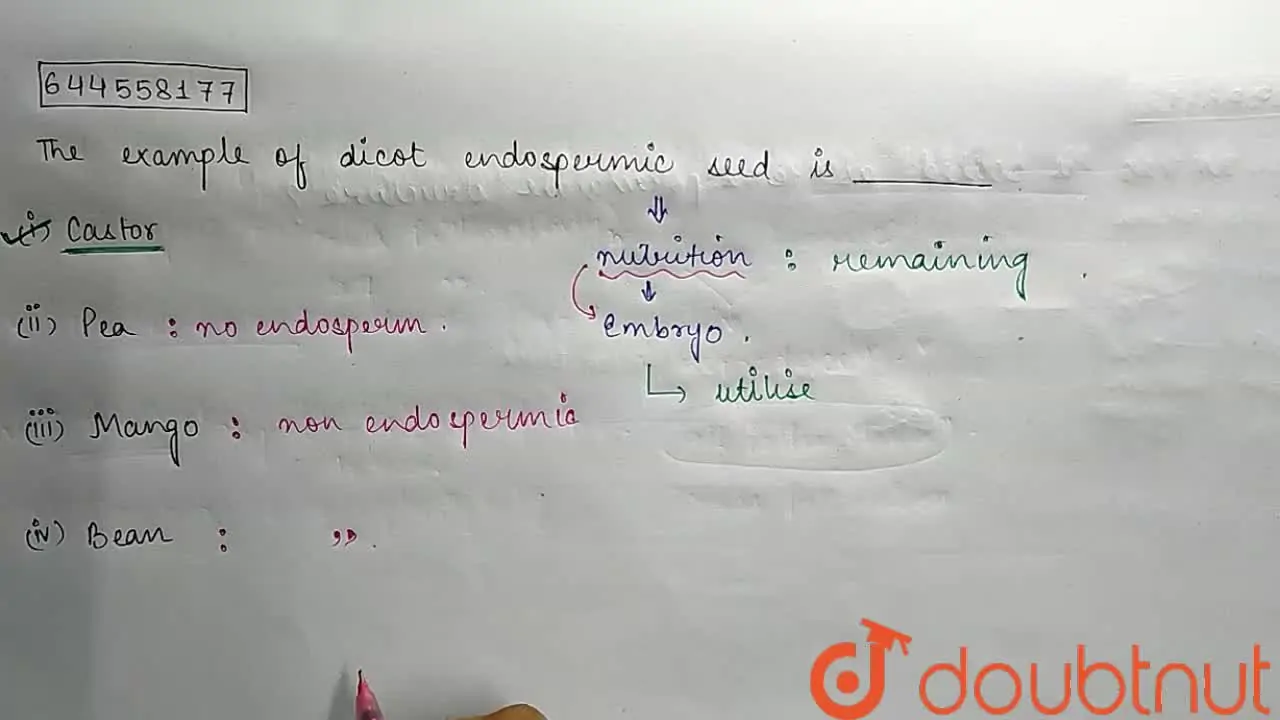 644558177
The example of dicot endospermic seed is ______
(i) Castor
nutrition : remaining .
(ii) Pea : no endosperm .
Embryo .
utilise
(iii) Mango : non endospermic
(iv) Bean : ” .
doubtnut